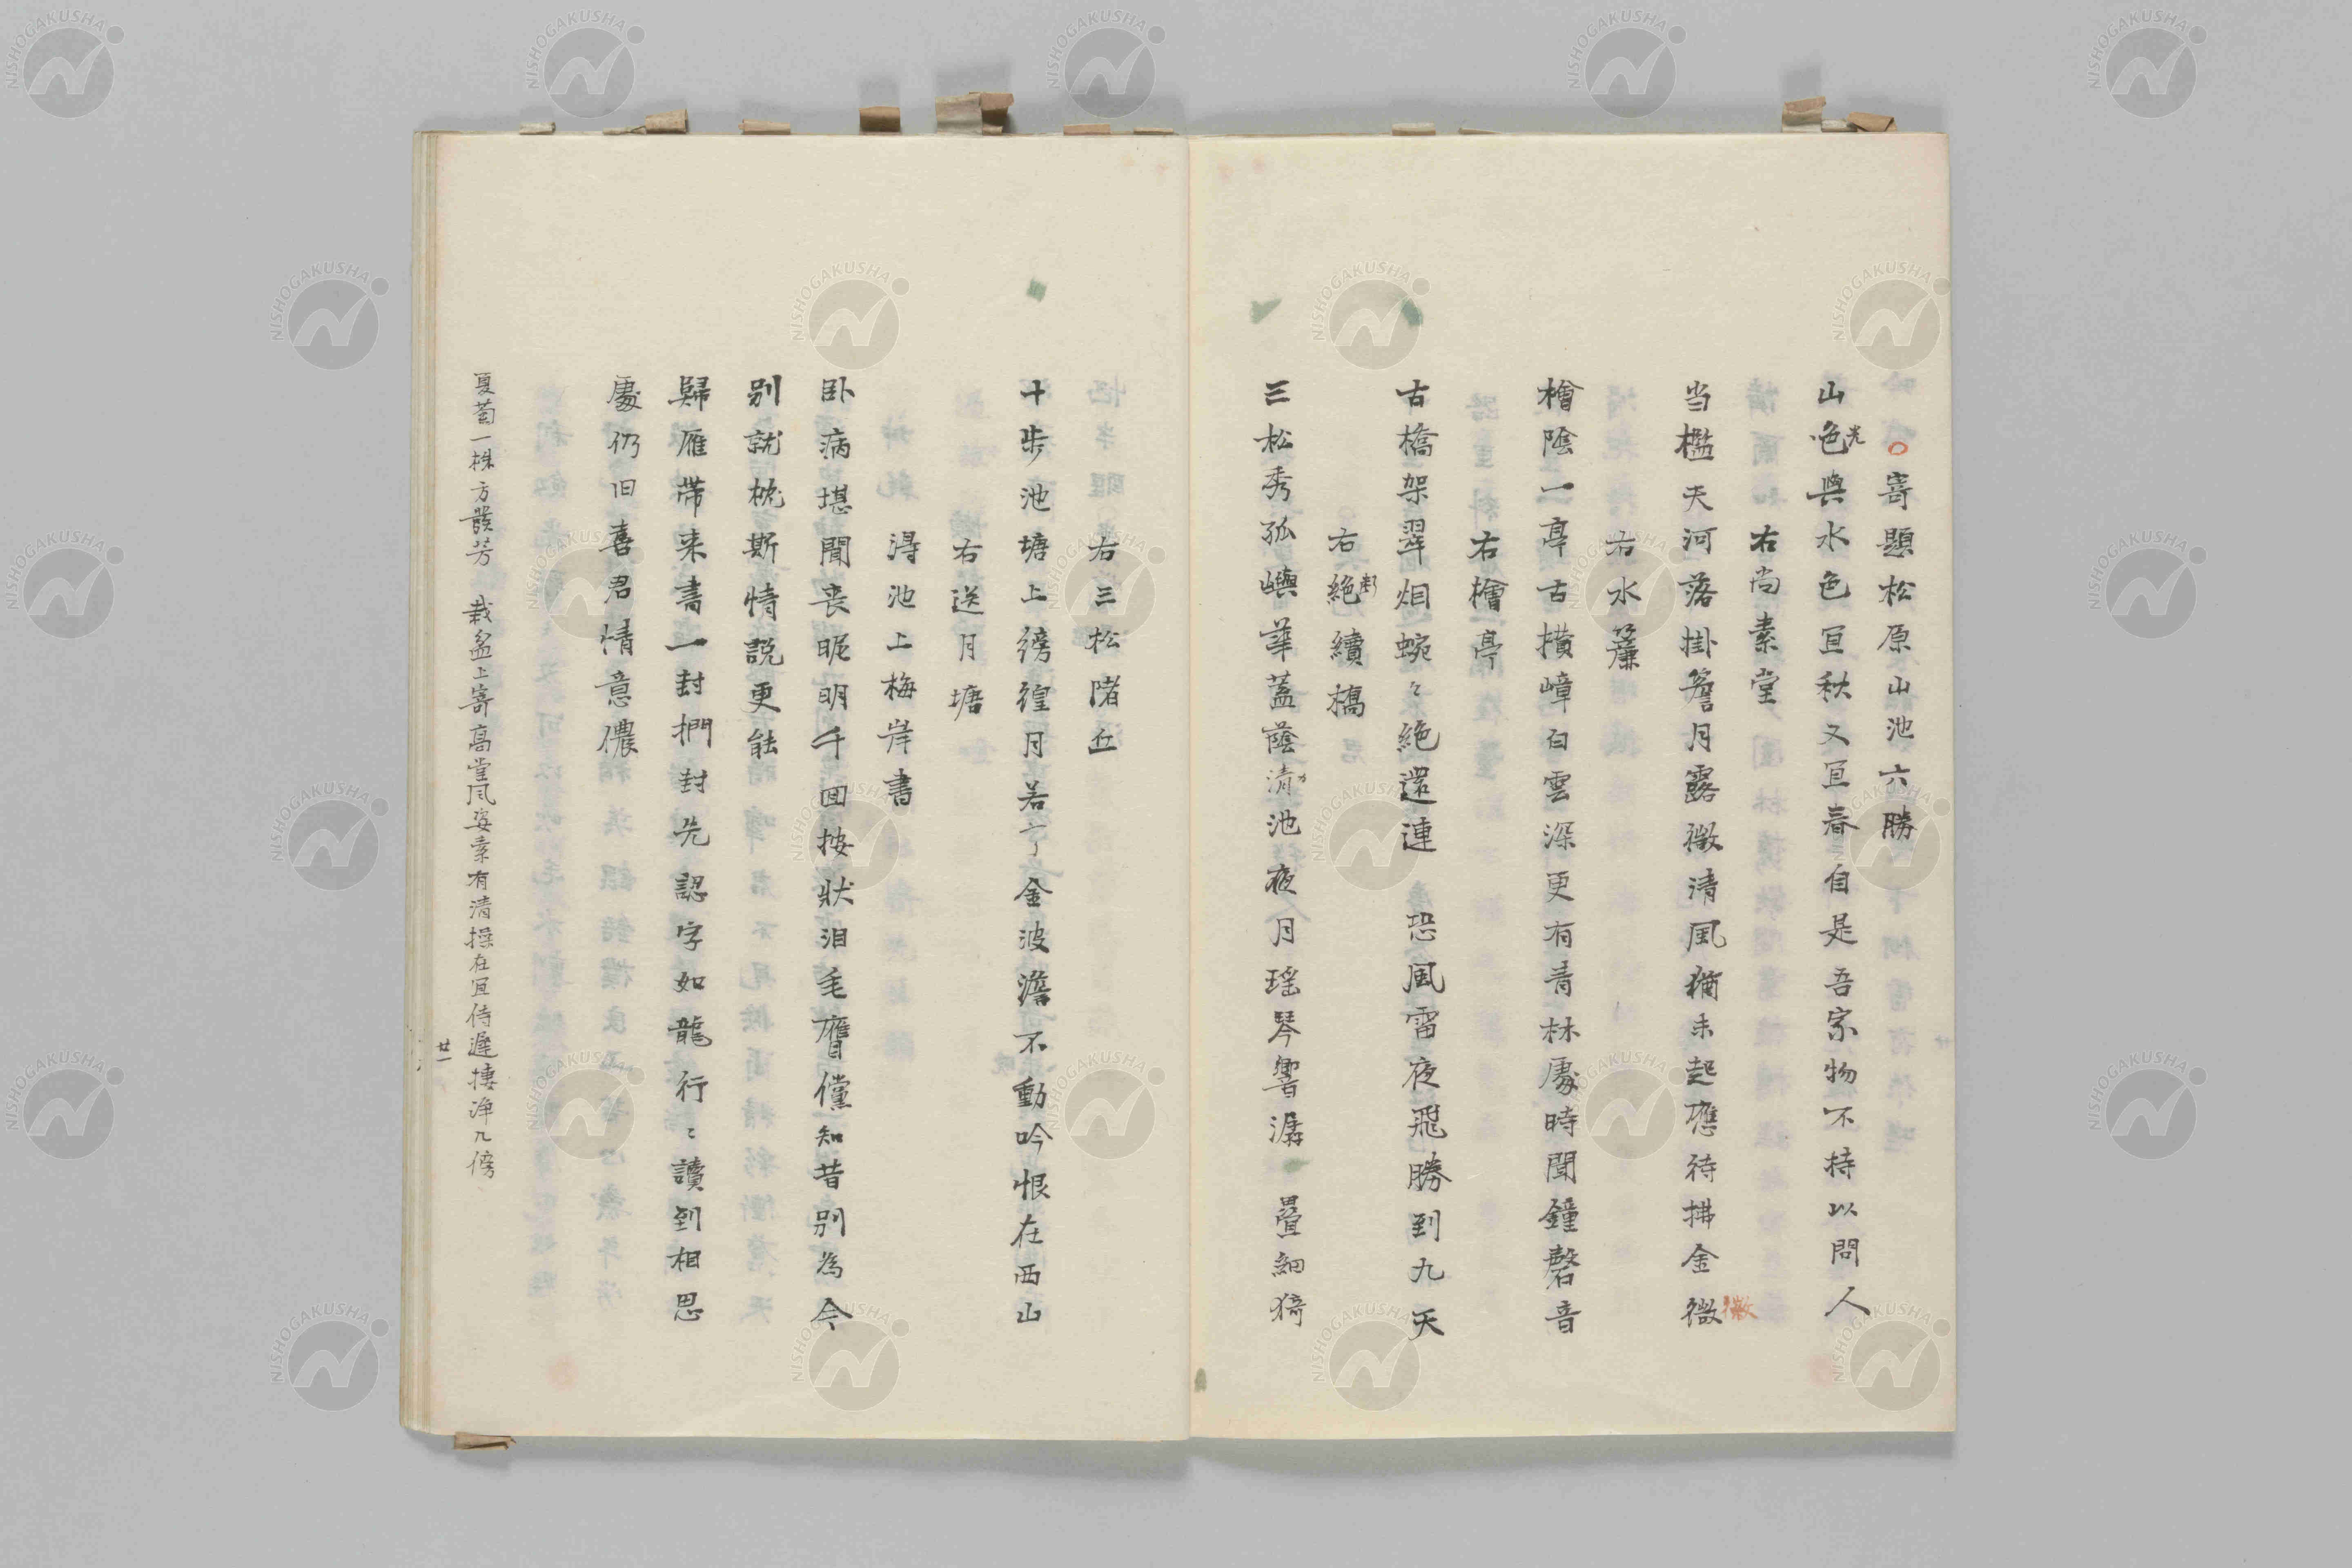 ○寄題松原山池六勝
山色光與水色宜秋又宜春自是吾家物不持以問人
右尚素堂
当檻天河落掛簷月露微清風猶未起應待拂金微徽
右水簾
檜陰一亭古横嶂白雲深更有青林處時聞鐘磬音
右檜亭
古橋架翠烟蜿々絶還連恐風雷夜飛勝到九天
右絶續橋
三松秀孤嶼華蓋蔭清池夜月瑶琴響潺疊細猗
右三松陼丘
十步池塘上徬徨月若丁金波澹不動吟恨在西山
右送月塘
淂池上梅岸書
卧病堪聞喪昵明千回按狀泪毛膺儻知昔别為今
别就枕斯情說更能
歸雁带来書一封捫封先認字如龍行々讀到相思
處仍旧喜君情意儂
夏蔔一株方發芳 栽盆上寄高堂風姿素有清操在宜侍遲捿淨几傍
廿一
NISHOGAKUSHA